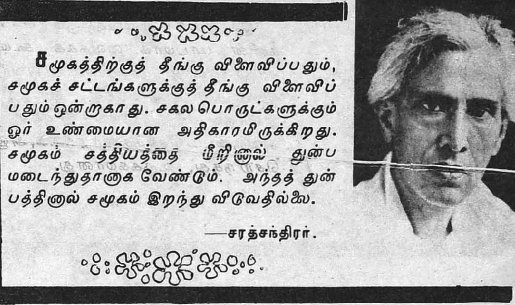 சமூகத்திற்குத் தீங்கு விளைவிப்பதும்,
சமூகச் சட்டங்களுக்குத் தீங்கு விளைவிப்
பதும் ஒன்றாகாது. சகல பொருட்களுக்கும்
ஓர் உண்மையான அதிகாரமிருக்கிறது.
சமூகம் சத்தியத்தை மீறினால் துன்ப
மடைந்துதானாக வேண்டும். அந்தத் துன்
பத்தினால் சமூகம் இறந்து விடுவதில்லை.
—சரத்சந்திரர்.